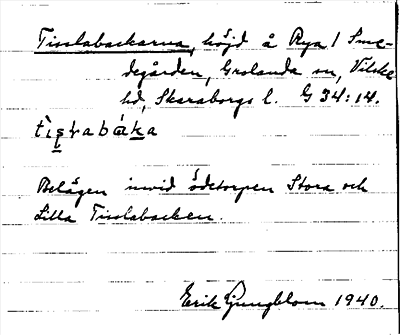 Tisslabackarna, höjd å Rya 1 Sme-
degården, Grolanda sn, Vilske
hd, Skaraborgs l. G 34:14.
Belägen invid ödetorpen Stora och
Lilla Tisslabacken.
Erik Ljungblom 1940.